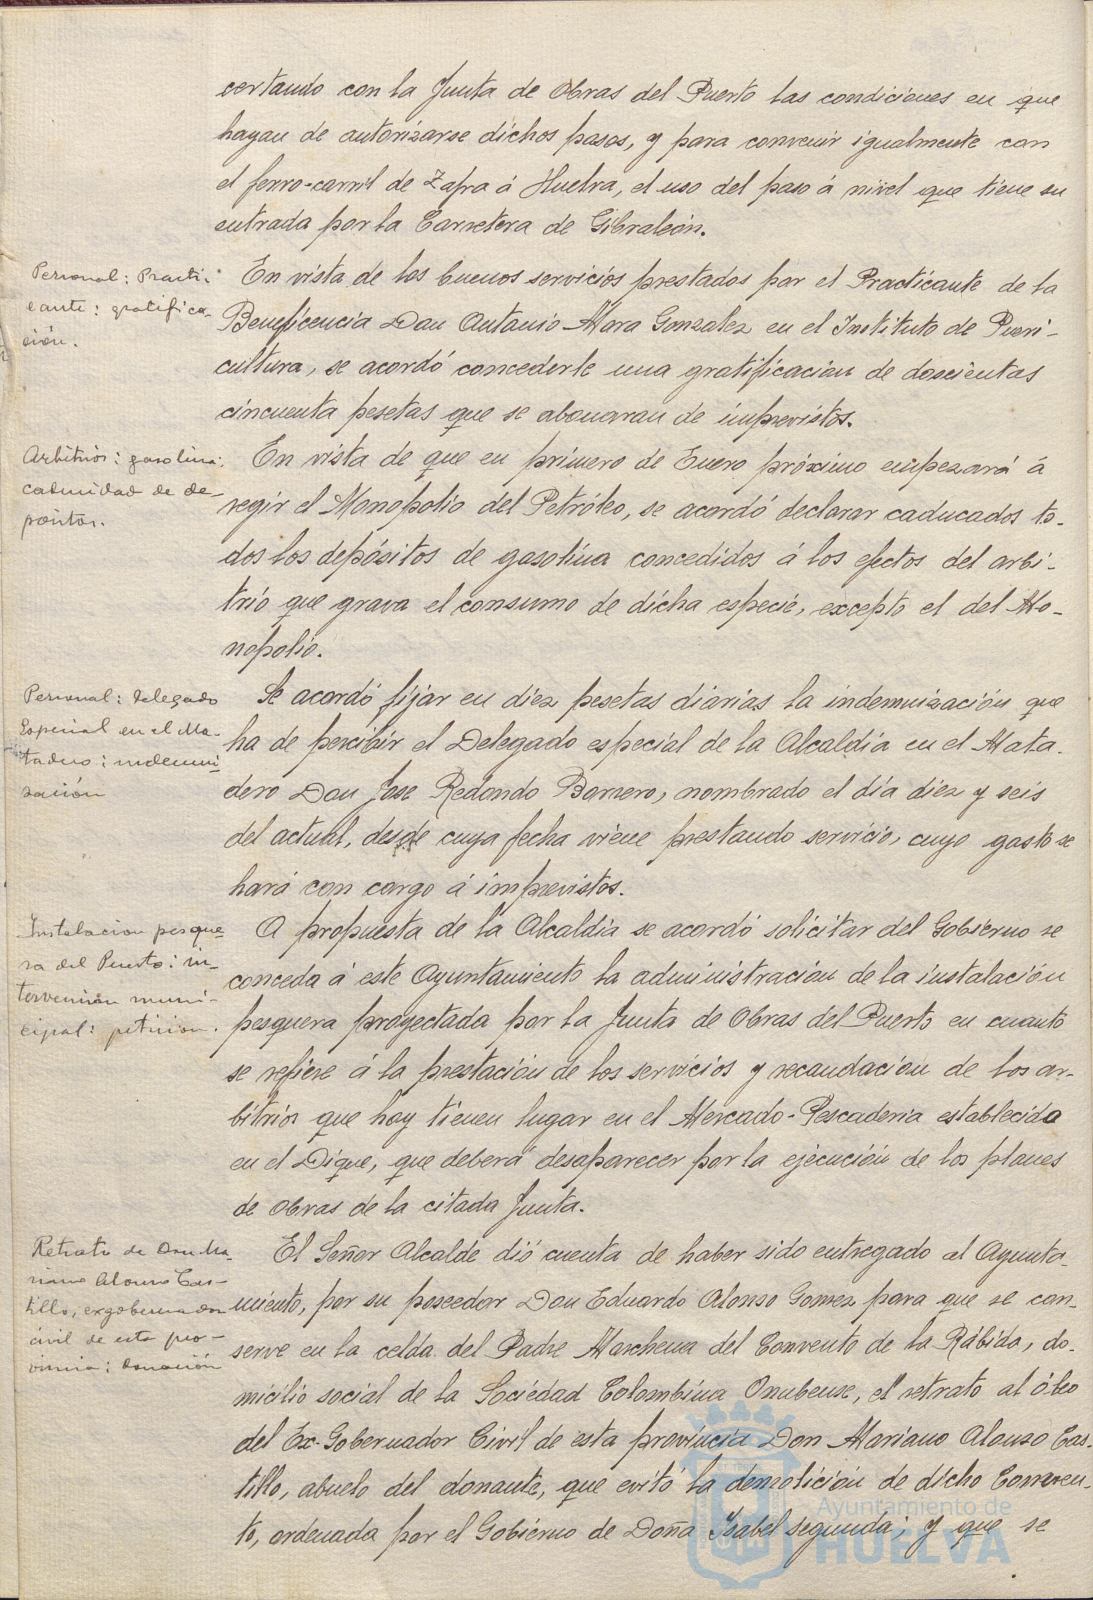 certando con la Junta de Obras del Puerto las condiciones en que
hayan de autorizarse dichos pasos, y para convenir igualmente con
el ferro-carril de Zafra á Huelva, el uso del paso á nivel que tiene su
entrada por la Carretera de Gibraleón.
Personal: Practi-
cante: gratifica-
ción.
En vista de los buenos servicios prestados por el Practicante de la
Beneficencia Don Antonio Mora Gonzalez en el Instituto de Pueri-
cultura, se acordó concederle una gratificacion de doscientas
cincuenta pesetas que se abonaran de imprevistos.
Arbitrios: gasolina:
caducidad de de-
pósitos.
En vista de que en primero de Enero próximo empezará á
regir el Monopolio del Petróleo, se acordó declarar caducados to-
dos los depósitos de gasolina concedidos á los efectos del arbi-
trio que grava el consumo de dicha especie, excepto el del Mo-
nopolio.
Personal: Delegado
Especial en el Ma-
tadero: indemni-
zación
Se acordó fijar en diez pesetas diarias la indemnización que
ha de percibir el Delegado especial de la Alcaldía en el Mata-
dero Don Jose Redondo Borrero, nombrado el día diez y seis
del actual, desde cuya fecha viene prestando servicio, cuyo gasto se
hará con cargo á imprevistos.
Instalacion pesque-
ra del Puerto: in-
tervencion muni-
cipal: peticion.
A propuesta de la Alcaldía se acordó solicitar del Gobierno se
conceda á este Ayuntamiento la administración de la instalación
pesquera proyectada por la Junta de Obras del Puerto en cuanto
se refiere á la prestación de los servicios y recaudación de los ar-
bitrios que hoy tienen lugar en el Mercado-Pescaderia establecido
en el Dique, que deberá desaparecer por la ejecución de los planes
de obras de la citada Junta.
Retrato de Don Ma-
riano Alonso Cas-
tillo, exgobernador
civil de esta pro-
vincia: donación
El Señor Alcalde dió cuenta de haber sido entregado al Ayunta-
miento, por su poseedor Don Eduardo Alonso Gomez para que se con-
serve en la celda del Padre Marchena del Convento de la Rábida, do-
micilio social de la Sociedad Colombina Onubense, el retrato al óleo
del Ex-Gobernador Civil de esta provincia Don Mariano Alonso Cas-
tillo, abuelo del donante, que evitó la demolición de dicho Conven-
to, ordenada por el Gobierno de Doña Isabel segunda; y que se
Ayuntamiento de
HUELVA